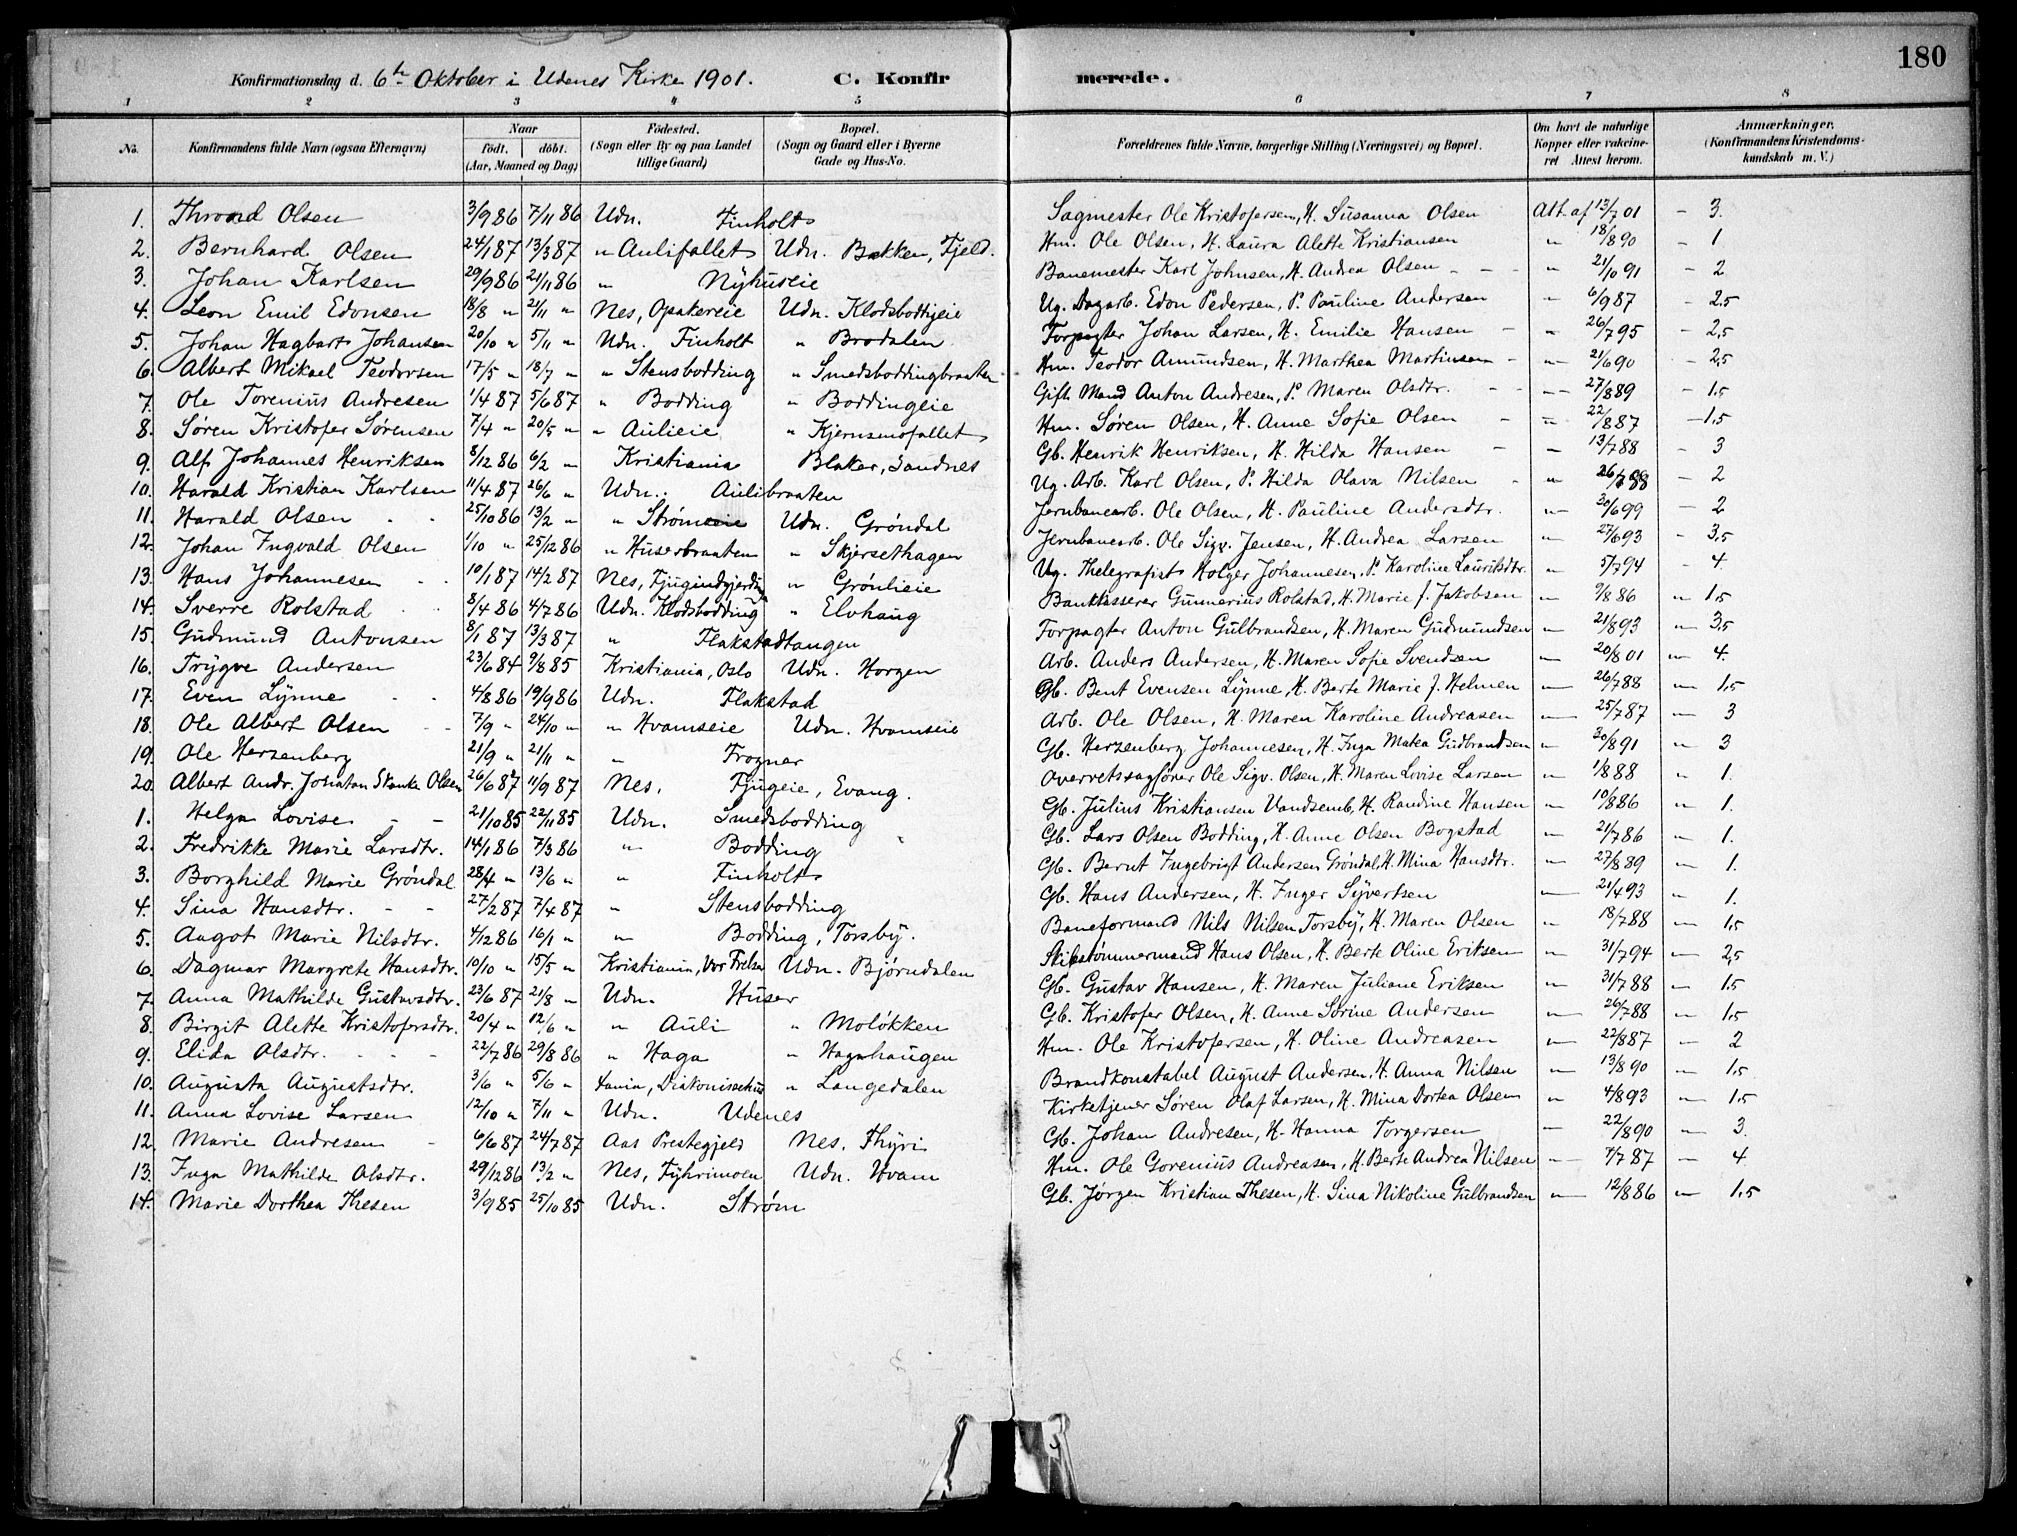 180
Konfirmationsdag d. 6te Oktober i Udenes Kirke 1901. C. Konfirmerede.
1 2 3 4 5 6 7 8
No. Konfirmandens fulde Navn (ogsaa Efternavn) Naar født. døbt. (Aar, Maaned og Dag) Fødested. (Sogn eller By og paa Landet tillige Gaard) Bopæl. (Sogn og Gaard eller i Byerne Gade og Hus-No. Forældrenes fulde Navne, borgerlige Stilling (Næringsvei) og Bopæl. Om havt de naturlige Kopper eller vakcineret Attest herom. Anmærkninger. (Konfirmandens Kristendomskundskab m. V.)
1. Thrond Olsen 3/9 86 7/11 86 Udn. Finholt Sagmester Ole Kristofersen, H. Susanna Olsen Att. af 13/7 01 - 3
2. Bernhard Olsen 24/1 87 13/3 87 " Aulifallet Udn. Bakken, Fjeld. Hm. Ole Olsen, H. Laura Alette Kristiansen " 18/8 90 - 1
3. Johan Karlsen 29/9 86 21/11 86 " Nyhuseie Banemester Karl Johnsen, H. Andrea Olsen - - " 21/10 91 - 2
4. Leon Emil Edonsen 18/8 " 21/11 " Nes, Opakereie Udn. Klodsbodhjeie Ug. Dagarb. Edon Pedersen, P. Pauline Andersen " 6/9 87 - 2,5
5. Johan Hagbart Johansen 20/10 " 5/11 " Udn. Finholt " Brodalen Forpagter Johan Larsen, H. Emilie Hansen - " 26/7 95 - 2,5
6. Albert Mikael Teodorsen 17/5 " 18/7 " " Stensbodding " Smedsboddingbraaten Hm. Teodor Amundsen, H. Marthea Martinsen - " 21/6 90 - 2,5
7. Ole Torenius Andresen 1/4 87 5/6 87 " Bodding " Boddingeie Gift Mand Anton Andresen, P. Maren Olsdtr. - - 27/8 89 - 1,5
8. Søren Kristofer Sørensen 7/4 " 20/5 " " Aulieie " Kjernsmofallet Hm. Søren Olsen, H. Anne Sofie Olsen - " 22/8 87 - 1,5
9. Alf Johannes Henriksen 8/12 86 6/2 " Kristiania Blaker, Sandnes Gb. Henrik Henriksen, H. Hilda Hansen - " 13/7 88 - 3
10. Harald Kristian Karlsen 11/4 87 26/6 " Udn. Aulibraaten Ug. Arb. Karl Olsen, P. Hilda Olava Nilsen - " 26/7 88 - 2
11. Harald Olsen 25/10 86 13/2 " " Strømeie Udn. Grøndal Jernbanearb. Ole Olsen, H. Pauline Andersdtr. " 30/6 99 - 2
12. Johan Ingvald Olsen 1/10 " 25/12 86 " Huserbraaten " Skjersethagen Jernbanearb. Ole Sigv. Jensen, H. Andrea Larsen " 27/6 93 - 3,5
13. Hans Johannesen 10/1 87 14/2 87 Nes, " Grønlieie Ug. Thelegrafist Holger Johannesen, P. Karoline Lauritsdtr. " 5/7 94 - 4
14. Sverre Rolstad 8/4 86 4/7 86 Udn. Klodsbodding " Elvhaug Bankkasserer Gunnerius Rolstad, H. Marie f. Jakobsen " 9/8 86 " 1,5
15. Gudmund Antonsen 8/1 87 13/3 87 " Flakstadtangen Forpagter Anton Gulbrandsen, H. Maren Gudmundsen " 21/8 93 " 3,5
16. Trygve Andersen 23/6 84 9/8 85 Kristiania, Oslo Udn. Horgen Arb. Anders Andersen, H. Maren Sofie Svendsen " 20/8 01 " 4.
17. Even Lynne 4/8 86 19/9 86 Udn. Flakstad Gb. Bent Evensen Lynne, H. Berte Marie f. Helmen " 26/7 88 " 1,5
18. Ole Albert Olsen 7/9 " 24/10 " " Hvamseie Udn. Hvamseie Arb. Ole Olsen, H. Maren Karoline Andreasen " 25/7 87 - 3
19. Ole Herzenberg 21/9 " 21/11 " " Frogner Gb. Herzenberg Johannesen, H. Inga Matea Gudbrandsen " 30/8 91 " 3
20. Albert Andr. Jonatan Skanke Olsen 26/6 87 11/9 87 Nes, Fjugeie, Evang. Overretssagfører Ole Sigv. Olsen, H. Maren Lovise Larsen " 1/8 88 " 1.
1. Helga Lovise - - 21/10 85 22/11 85 Udn. Smedsbodding Gb. Julius Kristiansen Vandsemb, H. Randine Hansen " 10/8 86 " 1.
2. Fredrikke Marie Larsdtr. 14/1 86 7/3 86 " Bodding Gb. Lars Olsen Bodding, H. Anne Olsen Bogstad " 21/7 86 - 1.
3. Borghild Marie Grøndal 28/4 " 13/6 " " Finholt Gb. Bernt Ingebrigt Andersen Grøndal, H. Mina Hansdtr. " 27/8 89 - 1.
4. Sina Hansdtr. - - 27/2 87 7/4 87 " Stensbodding Gb. Hans Andersen, H. Inger Syvertsen " 21/4 93 " 1.
5. Aagot Marie Nilsdtr. 4/12 86 16/1 " " Bodding, Torsby. Baneformand Nils Nilsen Torsby, H. Maren Olsen " 18/7 88 " 1,5
6. Dagmar Margrete Hansdtr. 10/10 " 15/5 " Kristiania, Vor Frelser Udn. Bjørndalen Skibstømmermand Hans Olsen, H. Berte Oline Eriksen " 31/7 94 " 2,5
7. Anna Mathilde Gustavsdtr. 23/6 87 21/8 " Udn. Huser Gb. Gustav Hansen, H. Maren Juliane Eriksen " 31/7 88 " 1.5
8. Birgit Alette Kristofersdtr. 20/4 " 12/6 " " Auli " Moløkken Gb. Kristofer Olsen, H. Anne Sorine Andersen " 26/7 88 " 1,5
9. Elida Olsdtr. - - 22/7 86 29/8 86 " Haga " Hagahaugen Hm. Ole Kristofersen, H. Oline Andreasen " 22/8 87 - 2
10. Augusta Augustsdtr. 3/6 " 5/6 " " Langedalen Brandkonstabel August Andersen, H. Anna Nilsen " 13/8 90 " 1,5
11. Anna Lovise Larsen 12/10 " 7/11 " Udn. Udenes Kirketjener Søren Olaf Larsen, H. Mina Dortea Olsen " 4/8 93 " 1,5
12. Marie Andresen - 6/6 87 24/7 87 Aas Prestegjeld Nes. Thyri Gb. Johan Andresen, H. Hanna Torgersen - 22/8 90 - 3.
13. Inga Mathilde Olsdtr. 29/12 86 13/2 " Nes, Fyhrimoen Udn. Hvam Hm. Ole Gorenius Andreasen, H. Berte Andrea Nilsen - 7/7 87 - 4
14. Marie Dorthea Thesen 3/9 85 25/10 85 Udn. Strøm Gb. Jørgen Kristian Thesen, H. Sina Nikoline Gulbrandsen " 12/8 86 " 1,5